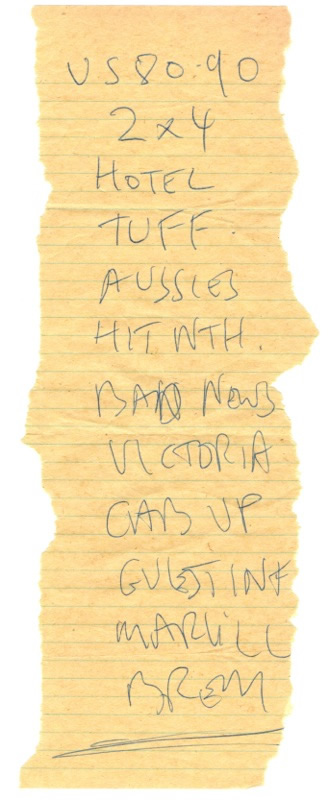 US 80·90
2x4
HOTEL
TUFF.
AUSSIES
HIT NTH.
BAD NEWS
VICTORIA
CAB UP
GUEST INF
MARK'LL
BREM